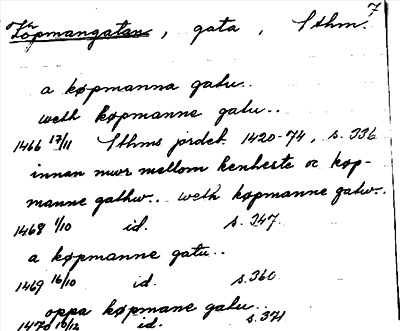 7
Köpmangatan, gata, Sthm.
a køpmanna gatu..
weth køpmanne gatu..
1466 17/11 Sthms jordeb. 1420-74, s. 336
innan mwr mellom henheste oc køp-
manne gathw.. weth køpmanne gatw..
1468 1/10 id. s. 347
a køpmanne gatu..
1469 16/10 id. s. 360
oppa køpmane gatu..
1470 10/12 id. s. 371